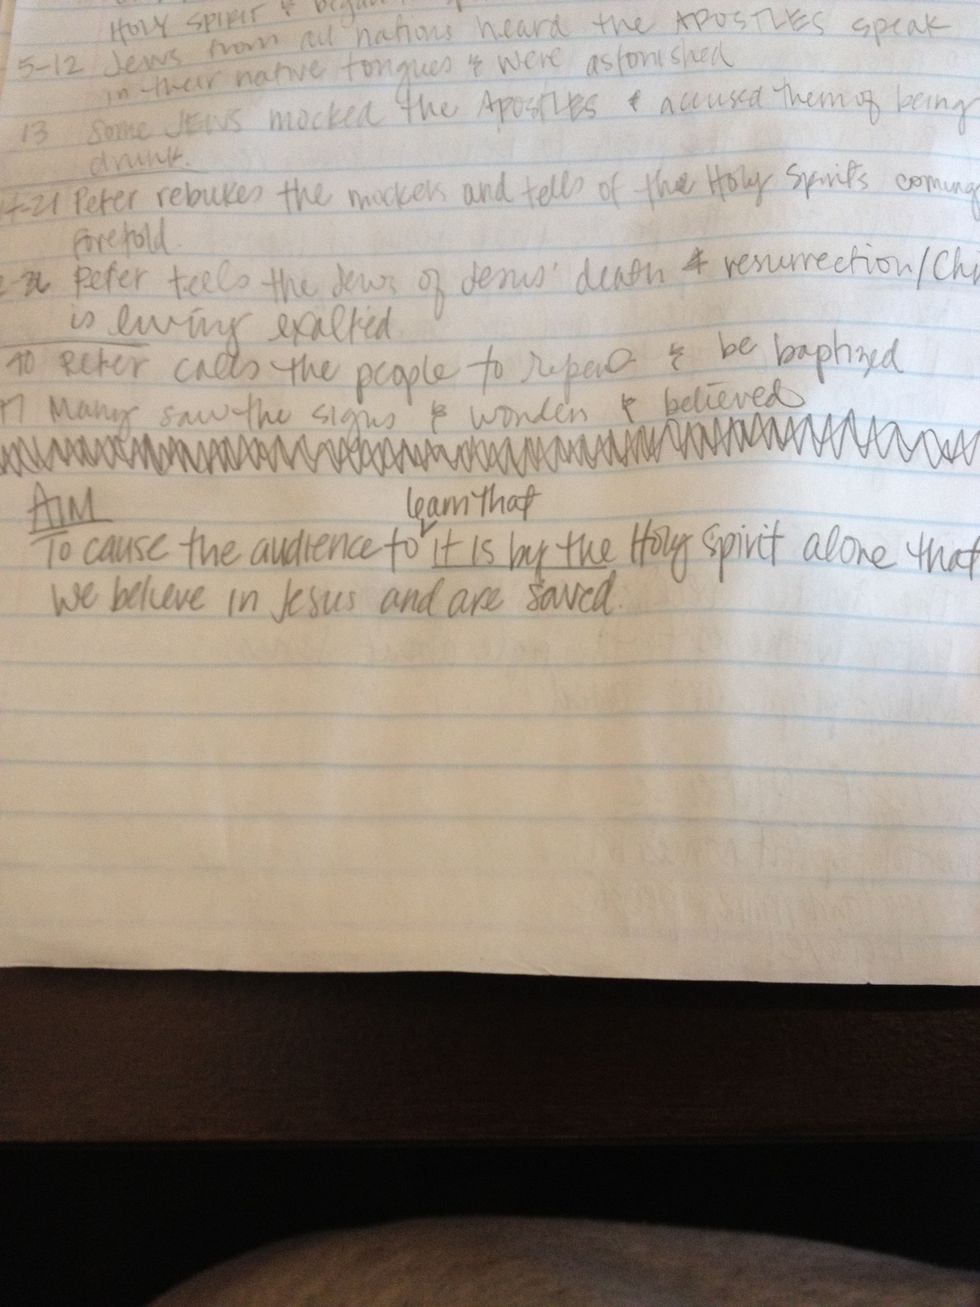 Holy Spirit & began
5-12 Jews from all nations heard the APOSTLES speak
in their native tongues & were astonished
13 Some JEWS mocked the APOSTLES & accused them of being
drunk.
-21 Peter rebukes the mockers and tells of the Holy Spirit's coming
foretold.
Peter tells the Jews of Jesus' death & resurrection/Chr
is living exalted
40 Peter calls the people to repent & be baptized
Many saw the signs & wonders & believed
AIM
learn that
To cause the audience to it is by the Holy Spirit alone that
we believe in Jesus and are saved.